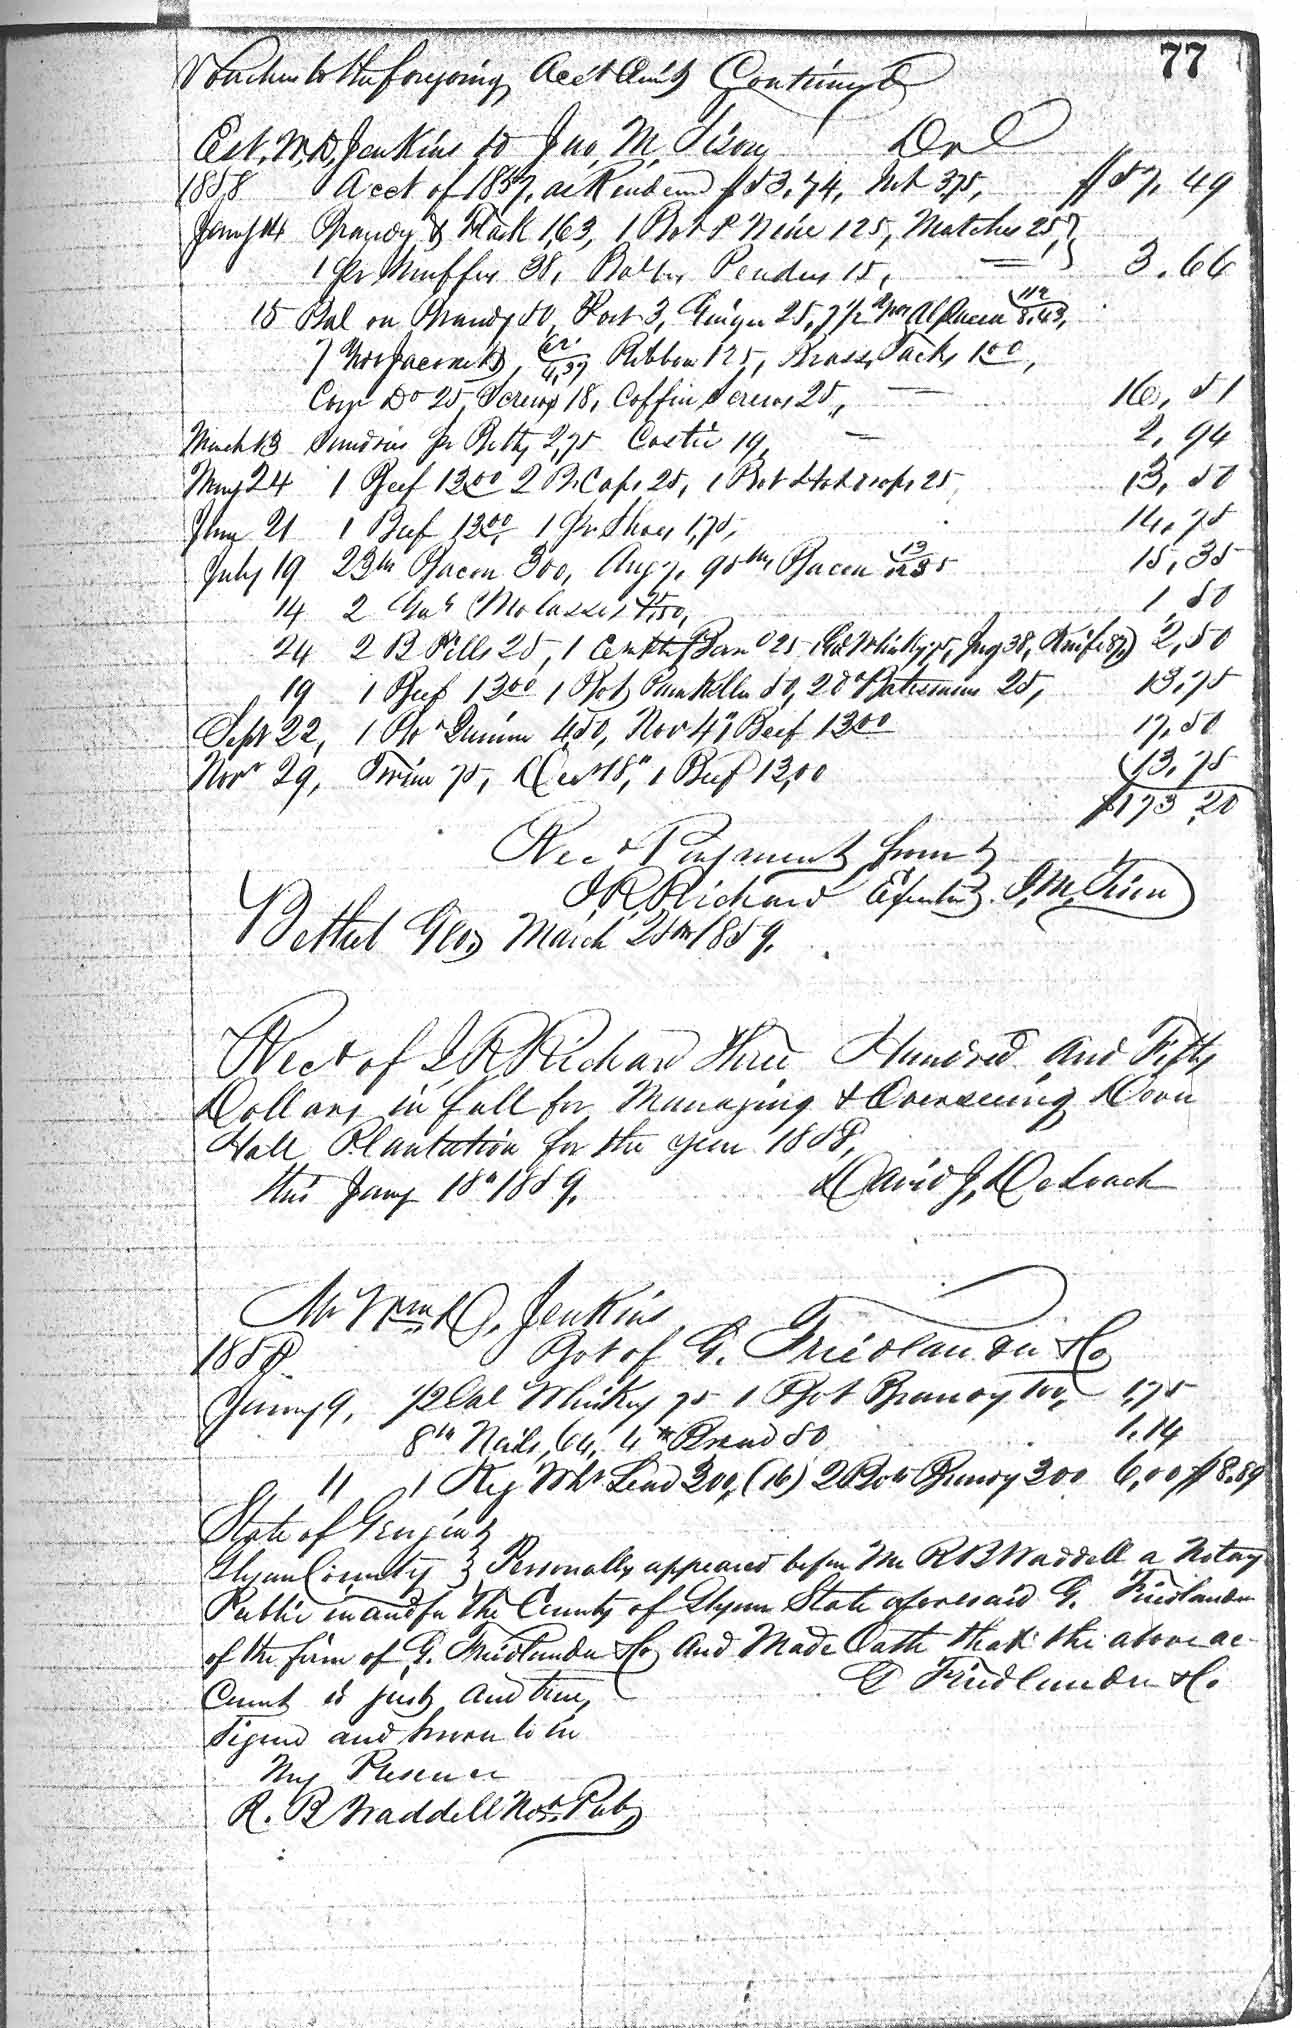 77
Vouchers to the foregoing Acct Curt Continued
Est. W. D. Jenkins to Jno. M. Tison Dr
1858 Acct of 1857, as Rendered $53,74, Int 3,75, $57,49
Jany 14 Brandy & Flask 1,63, 1 Bot P Wine 125, Matches 25,
1 pr Snuffers 38, 15, 3.66
15 Bal on Brandy 50, Port 3, Ginger 25, 7 1/2 yds Alpacca 112 8,43,
7 yds Jaconett, 62 1/2 4,37 Ribbon 125, Brass Tacks 100,
Copr Do 25, Screws 18, Coffin Screws 25, 16,51
March 13 Sundries pr Betty 2,75 Castor 19, 2,94
May 24 1 Beef 1300 2 B. Caps 25, 1 Bot 25, 13,50
June 21 1 Beef 1300, 1 pr Shoes 1,75, 14,75
July 19 23lbs Bacon 300, Aug 7, 95lbs Bacon 13 1235 15,35
14 2 Gals Molasses 75 1,50, 1,50
24 2 B Pills 25, 1 25 Gal Whisky 75, Jug 38, Knife 87) 2,50
19 1 Beef 1300 1 Bot Painkiller 50, 2 Do Batemans 25, 13,75
Sept 22, 1 Oz Quinine 450, Nov 4, 1 Beef 1300 17,50
Nov 29, Twine 75, Decr 18, 1 Beef 13,00 13,75
$173,20
Recd Payment from
J. R. Richard Executor J. M. Tison
Bethel Geo, March 25th 1859.
Recd of J R Richard Three Hundred and Fifty
Dollars in full for Managing & Overseeing Dover
Hall Plantation for the year 1858,
this Jany 18th 1859. David J, DeLoach
Mr Wm D, Jenkins
1858 Bot of G. Friedlander & Co
Jany 9, 1/2 Gal Whiskey 75 1 Bot Brandy 100, 1,75
8lb Nails, 64, 4lb Bread 50 1.14
11 1 Keg Wht Lead 300, (16) 2 Bots Brandy 300 6,00 $8,89
State of Georgia
Glynn County } Personally appeared before me R B Waddell a Notary
Public in and for the County of Glynn State aforesaid G. Friedlander
of the firm of G. Friedlander & Co, and Made Oath that the above ac-
count is just and true,
G Friedlander & Co.
Signed and Sworn to in
My Presence
R. B Waddell Not. Pub,